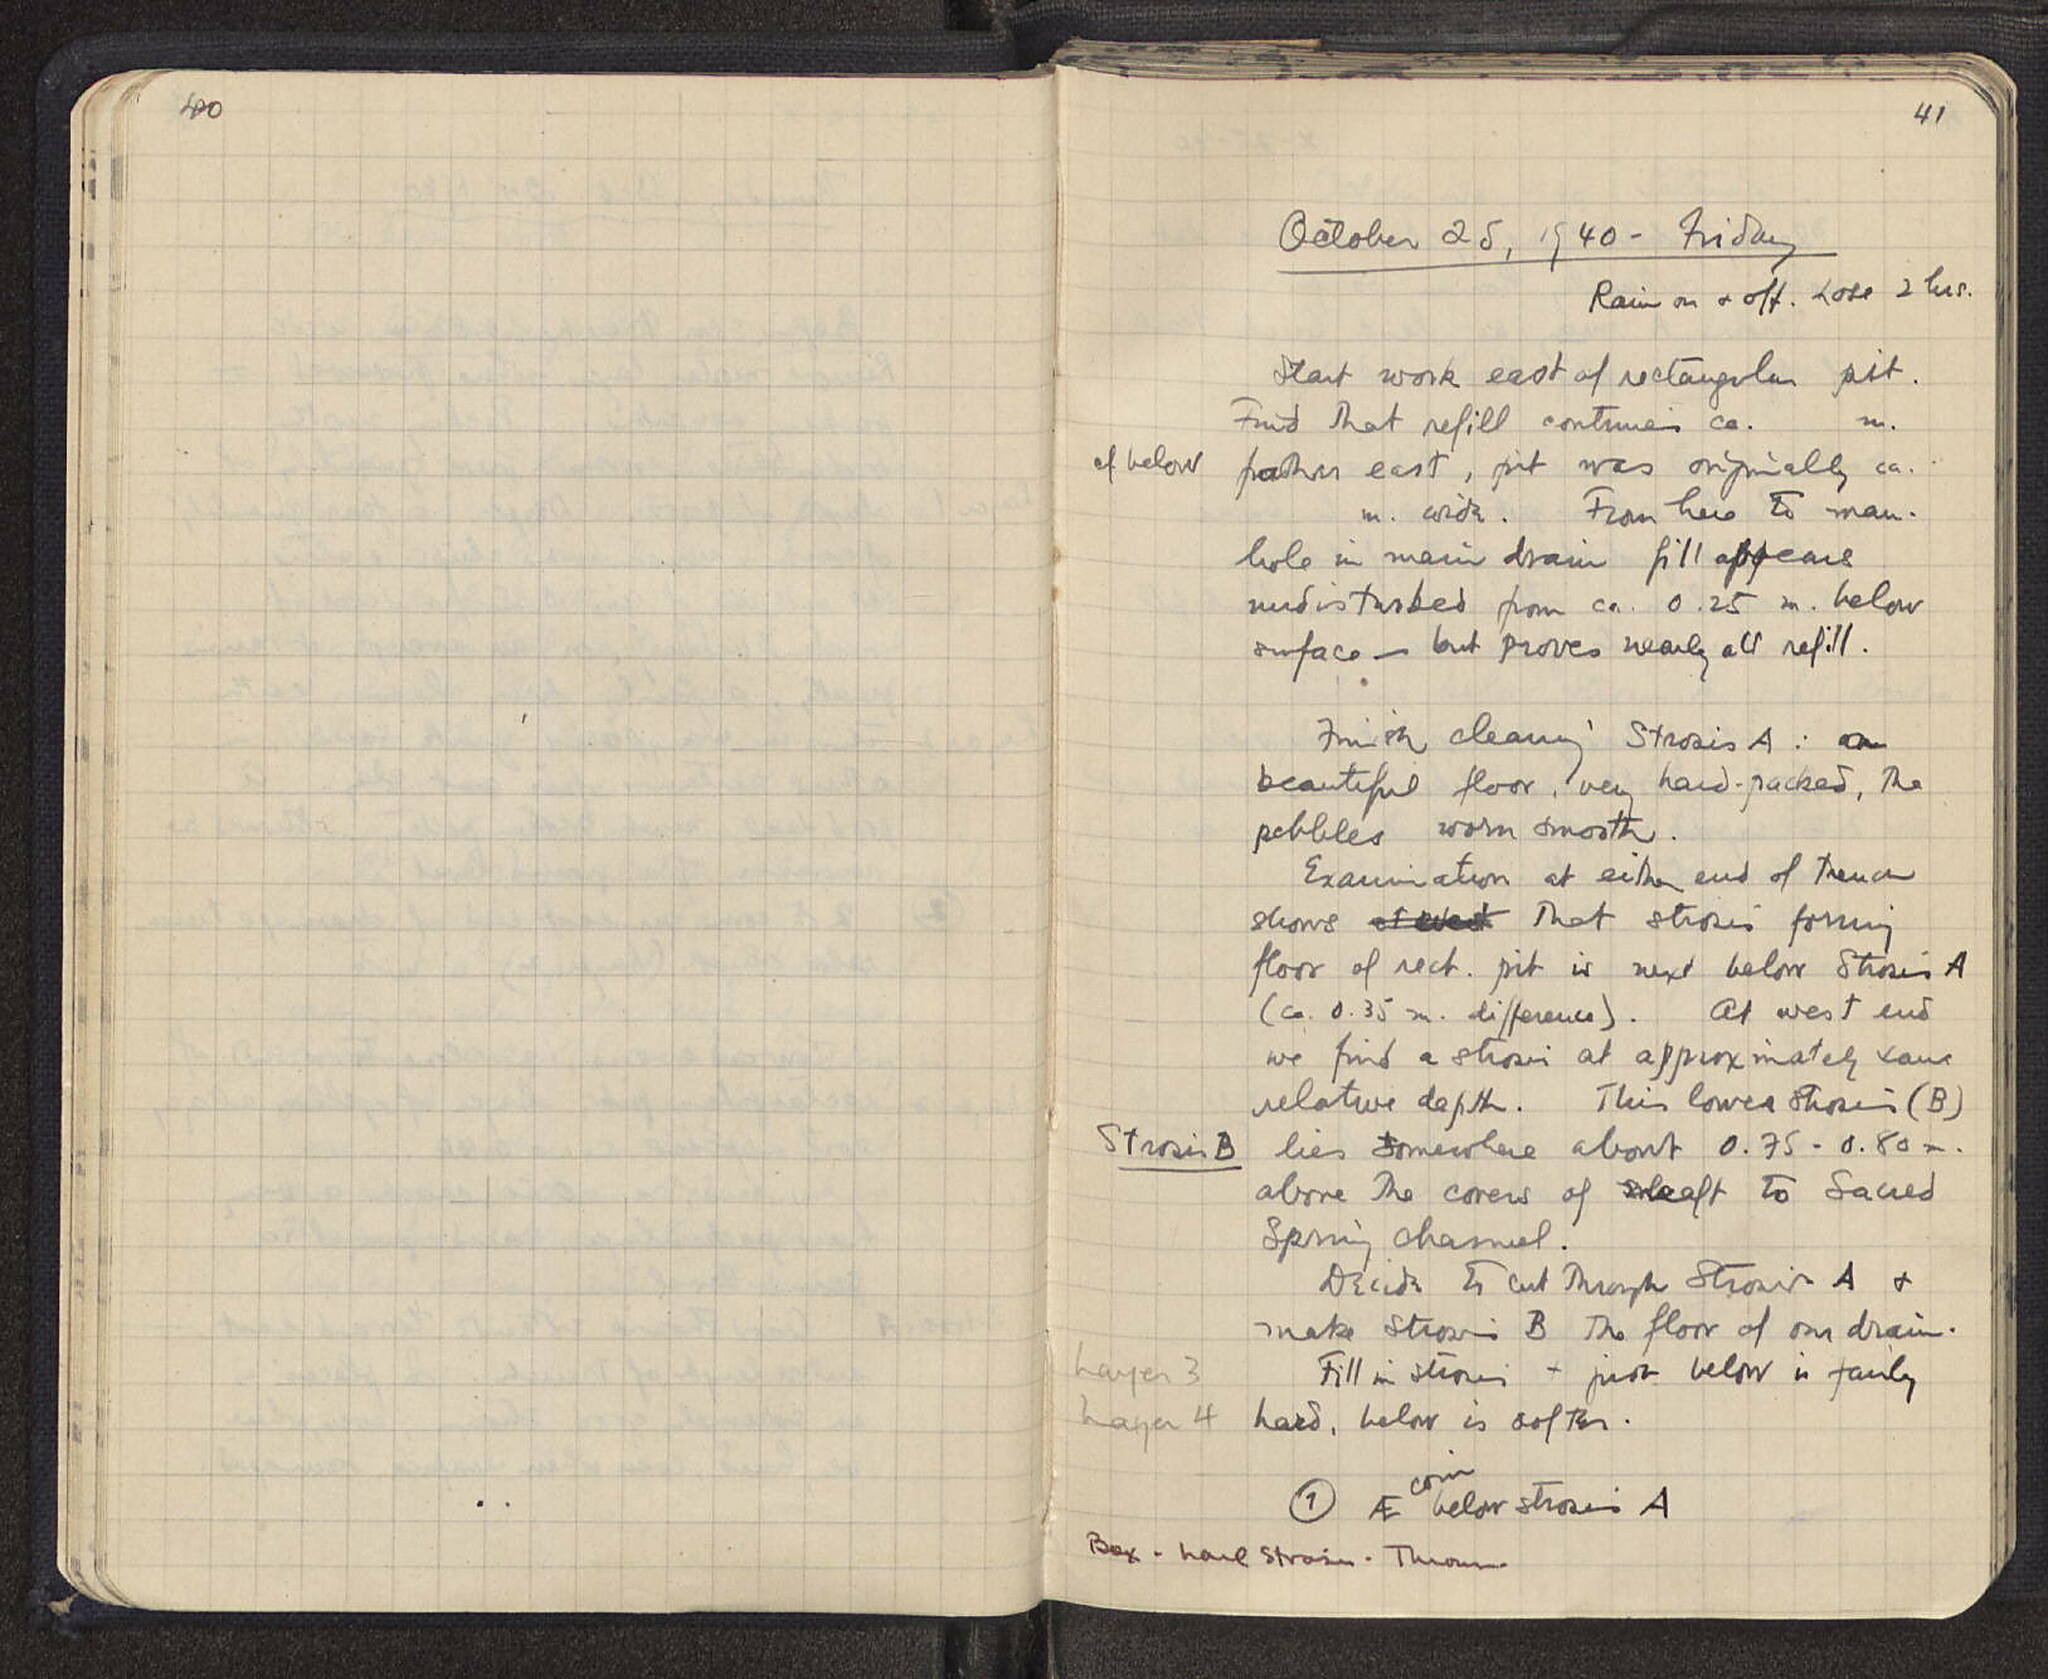 40
41
October 25, 1940 - Friday
Rain on & off. Lose 2 hrs.
Start work east of rectangular pit.
Find that refill continues ca. m.
cf below farther east, pit was originally ca.
m. wide. From here to man-
hole in main drain fill appears
undisturbed from ca. 0.25 m. below
surface — but proves nearly all refill.
Finish cleaning Strosis A : a
beautiful floor, very hard-packed, the
pebbles worn smooth.
Examination at either end of trench
shows at west that strosis forming
floor of rect. pit is next below Strosis A
(ca. 0.35 m. difference). At west end
we find a strosis at approximately same
relative depth. This lower strosis (B)
Strosis B lies somewhere about 0.75 - 0.80 m.
above the covers of shaft to Sacred
Spring channel.
Decide to cut through Strosis A &
make Strosis B the floor of our drain.
Layer 3 Fill in strosis + just below is fairly
Layer 4 hard, below is softer.
① Æ coin below strosis A
Box - hard strosis - Thrown